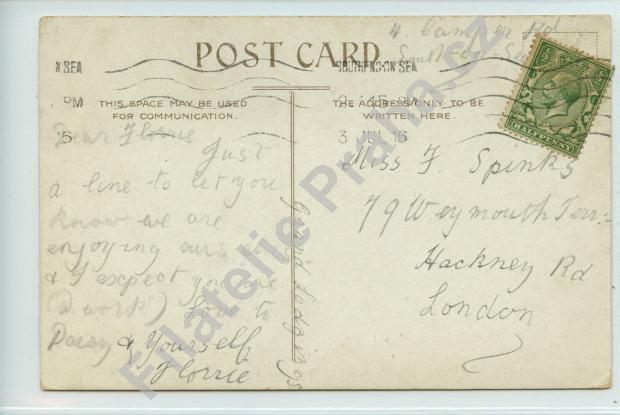 4. Camper Rd
Southend on Sea
POST CARD
N SEA
SOUTHEND-ON-SEA
PM
2 45 PM
THIS SPACE MAY BE USED
FOR COMMUNICATION.
THE ADDRESS ONLY TO BE
WRITTEN HERE.
16
3 JUL 16
HALFPENNY
Dear Florrie
Just
a line to let you
know we are
enjoying ours
& I expect you are
(@ work) love to
Daisy & Yourself
Florrie
Grand Lodgings
Miss F. Spinks
79 Weymouth Terr:
Hackney Rd
London
Filatelie Praga.cz